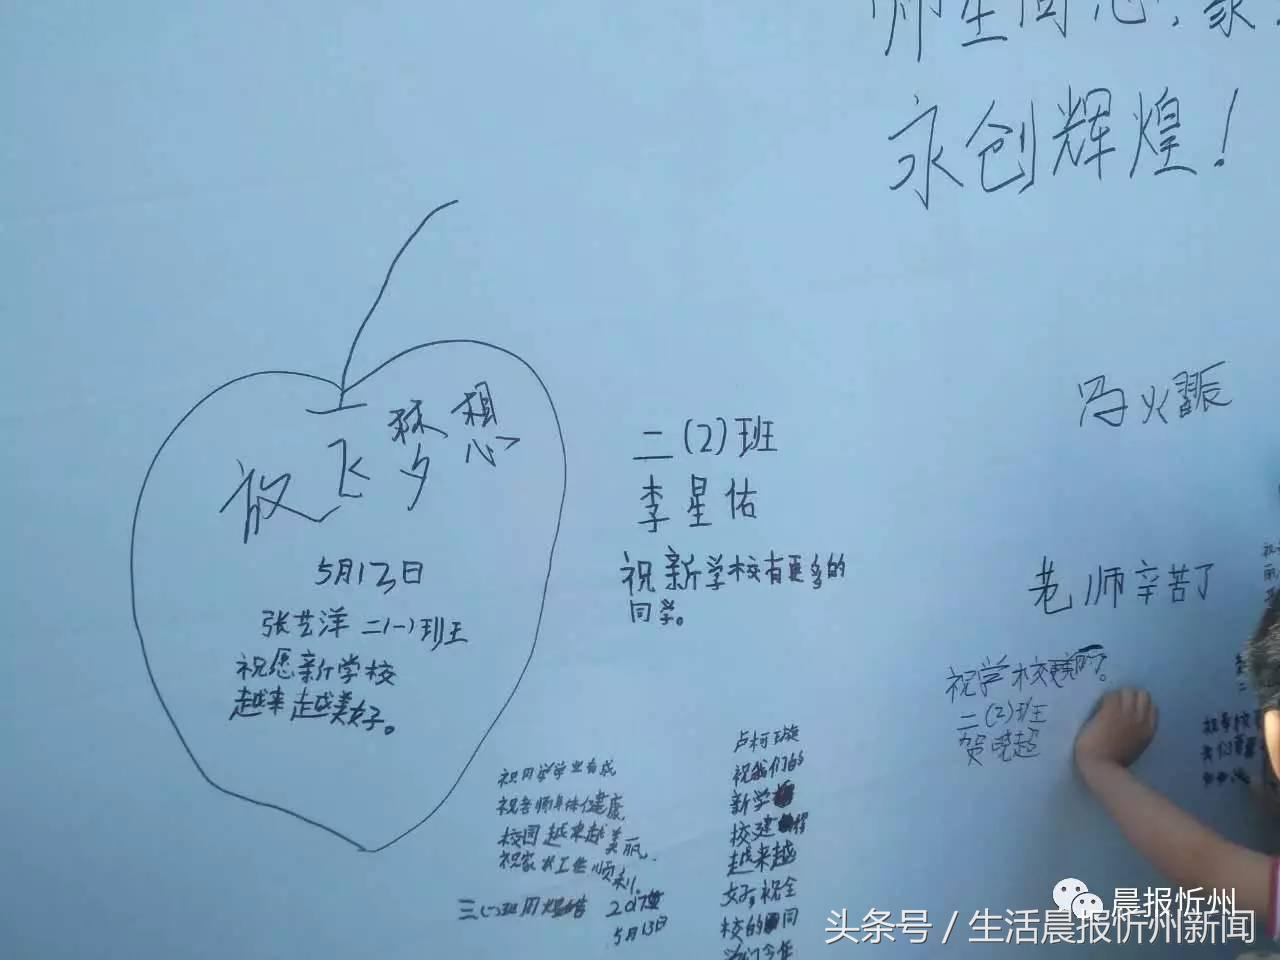 永创辉煌!
放飞梦想
5月13日
张艺洋 二(一)班王
祝愿新学校
越来越美好。
二(2)班
李星佑
祝新学校有更多的
同学。
老师辛苦了
祝学校更
二(2)班
贺晓超
祝同学学业有成
祝老师身体健康
校园越来越美丽.
祝家长工作顺利.
2017
5月13日
卢柯璇
祝我们的
新学
校建得
越来越
好,祝全
校的同
晨报忻州
头条号 / 生活晨报忻州新闻